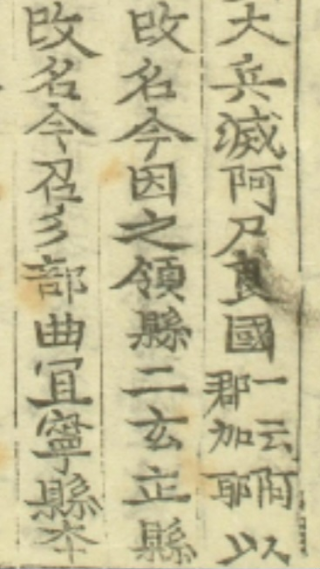 大兵滅阿尸良國一云阿郡加耶以
攺名今因之領縣二玄正縣
攺名今召彡部曲冝寧縣夲